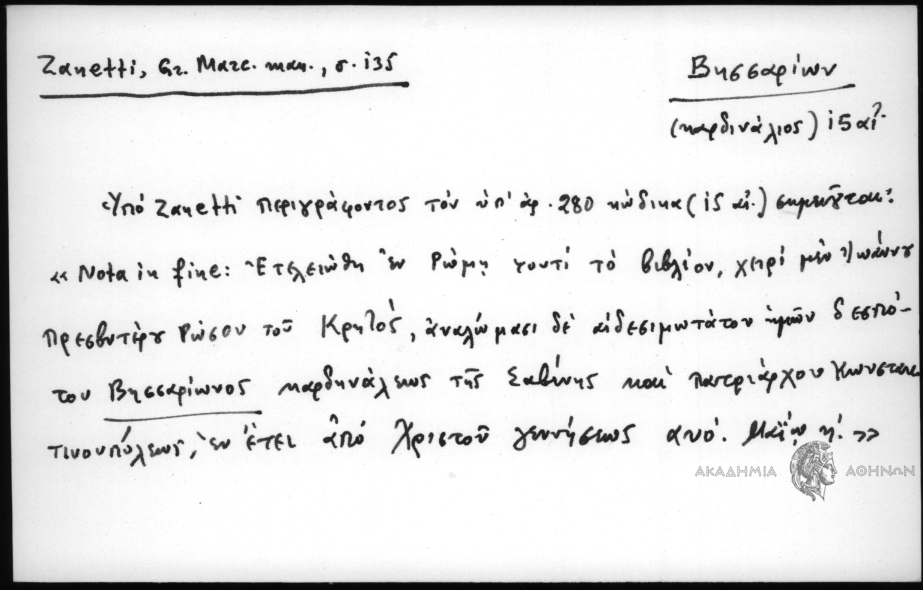 Zanetti, Gr. Marc. man., σ. 135
Βησσαρίων
(καρδινάλιος) 15 αἰ.
Ὑπό Zanetti περιγράφοντος τόν ὑπ' ἀρ. 280 κώδικα (15 αἰ.) σημειοῦται:
«Nota in fine: Ἐτελειώθη ἐν Ρώμῃ τουτί τό βιβλίον, χειρί μέν Ἰωάννου
πρεσβυτέρου Ρώσου τοῦ Κρητός, ἀναλώμασι δέ αἰδεσιμωτάτου ἡμῶν δεσπό-
του Βησσαρίωνος καρδηνάλεως τῆς Σαβίνης καί πατριάρχου Κωνσταν
τινουπόλεως, ἐν ἔτει ἀπό Χριστοῦ γεννήσεως αυό. Μαΐῳ η΄.»
ΑΚΑΔΗΜΙΑ ΑΘΗΝΩΝ